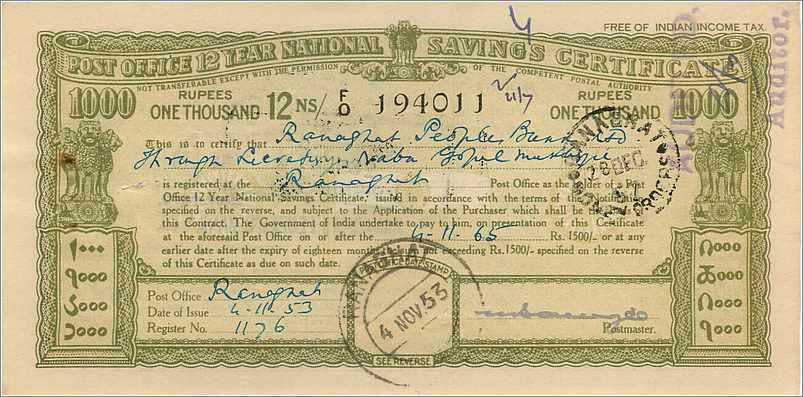 FREE OF INDIAN INCOME TAX.
POST OFFICE 12 YEAR NATIONAL SAVINGS CERTIFICATE
NOT TRANSFERABLE EXCEPT WITH THE PERMISSION OF THE COMPETENT POSTAL AUTHORITY
1000 RUPEES ONE THOUSAND 12 NS/ F/D 194011 RUPEES ONE THOUSAND 1000
This is to certify that Ranaghat Peoples Bank Ltd
Through Secretary Gopal
is registered at the Ranaghat Post Office as the holder of a Post
Office 12 Year National Savings Certificate, issued in accordance with the terms of the
specified on the reverse, and subject to the Application of the Purchaser which shall be
this Contract. The Government of India undertake to pay to him, on presentation of this Certificate
at the aforesaid Post Office on or after the 4-11-65 Rs. 1500/- or at any
earlier date after the expiry of eighteen months not exceeding Rs.1500/- specified on the reverse
of this Certificate as due on such date.
Post Office Ranaghat
Date of Issue 4-11-53
Register No. 1176
Postmaster.
RANAGHAT
4 NOV. 53
SEE REVERSE
28 DEC.
Auditor.
१०००